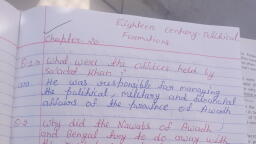 Eighteen century Political
Formations
Chapter 20
Q.1 What were the offices held by
Sa'adat Khan?
Ans He was responsible for managing
the political, military and
affairs of the province of Awadh
Q.2 Why did the Nawabs of Awadh
and Bengal try to do away with